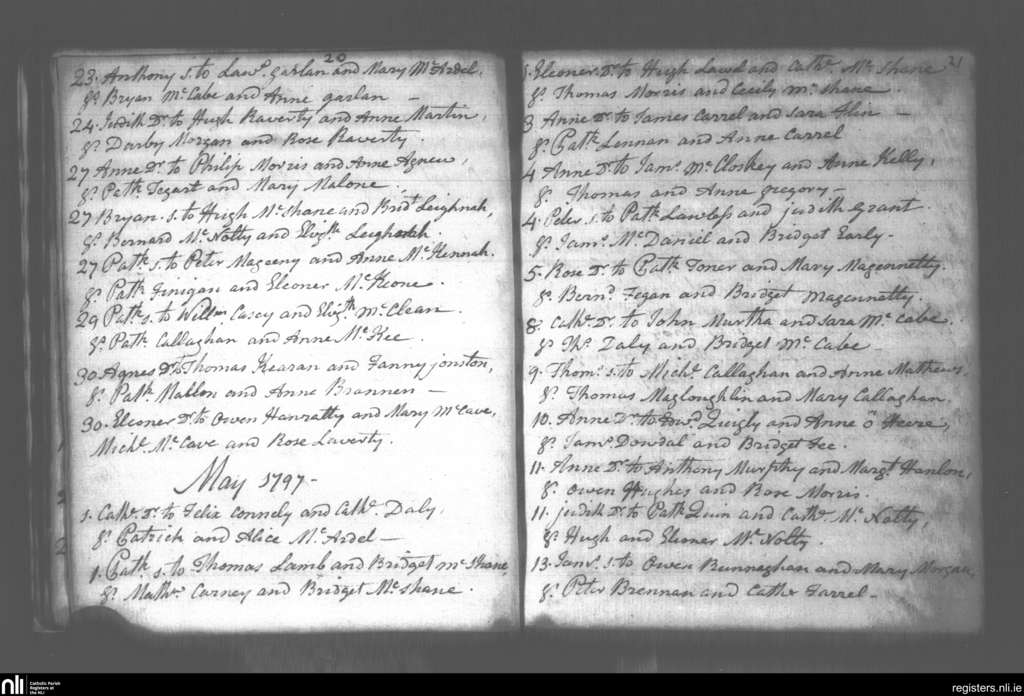 20
23. Anthony s. to Lawe. garlan and Mary Mc Ardel,
gs. Bryan Mc Cabe and Anne garlan —
24. Judith Dr. to Hugh Raverty and Anne Martin,
gs. Darby Morgan and Rose Raverty.
27 Anne Dr. to Philip Morris and Anne Agnew,
gs. Patk. Tegart and Mary Malone
27 Bryan. s. to Hugh Mc Shane and Bridt. Leighnah,
gs. Bernard Mc Nolty and Elizth.
27 Patk. s. to Peter Mageeny and Anne Mc Kennah.
gs. Patk. Finigan and Eleoner Mc Keone.
29 Patk. s. to Willm. Casey and Elizth. Mc Clean.
gs. Patk. Callaghan and Anne Mc Kee.
30. Agnes Dr. to Thomas Kearan and Fanny jonston,
gs. Patk. Mallon and Anne Brannen —
30. Eleoner Dr. to Owen Hanratty and Mary Mc Cave,
Michl. Mc Cave and Rose Laverty.
May 1797-
1. Cathe. Dr. to Felix Connely and Cathe. Daly,
gs. Patrick and Alice Mc Ardel —
1. Patk. s. to Thomas Lamb and Bridget Mc Shane,
gs. Mathw. Carney and Bridget Mc Shane.
21
Eleoner Dr. to Hugh Lawd and Cathe. Mc Shane
gs. Thomas Morris and Cecily Mc Shane.
3 Anne Dr. to James Carrel and Sara Flin —
gs. Patk. Lennan and Anne Carrel
4 Anne Dr. to Jams. Mc Closkey and Anne Kelly,
gs. Thomas and Anne gregory —
4. Peter s. to Patk. Lawless and judith Grant
gs. Jams. Mc Daniel and Bridget Early-
5. Rose Dr. to Patk. Toner and Mary Magennetty.
gs. Bernd. Fegan and Bridget Magennetty.
8. Cathe. Dr. to John Murtha and Sara Mc Cabe.
gs. Ths. Daly and Bridget Mc Cabe
9. Thoms. s. to Michl. Callaghan and Anne Mathews,
gs. Thomas Magloughlin and Mary Callaghan.
10. Anne Dr. to Quigly and Anne o Heere,
gs. Jams. Dowdal and Bridget Fee.
11. Anne Dr. to Anthony Murphy and Margt. Hanlon,
gs. Owen Hughes and Rose Morris.
11. judith Dr. to Patk. Quin and Cathe. Mc Nolty,
gs. Hugh and Eleoner Mc Nolty.
13. Jams. s. to Owen Runnaghan and Mary Morgan,
gs. Peter Brennan and Cathe. Farrel-
nli
Catholic Parish
Registers at
the NLI
registers.nli.ie